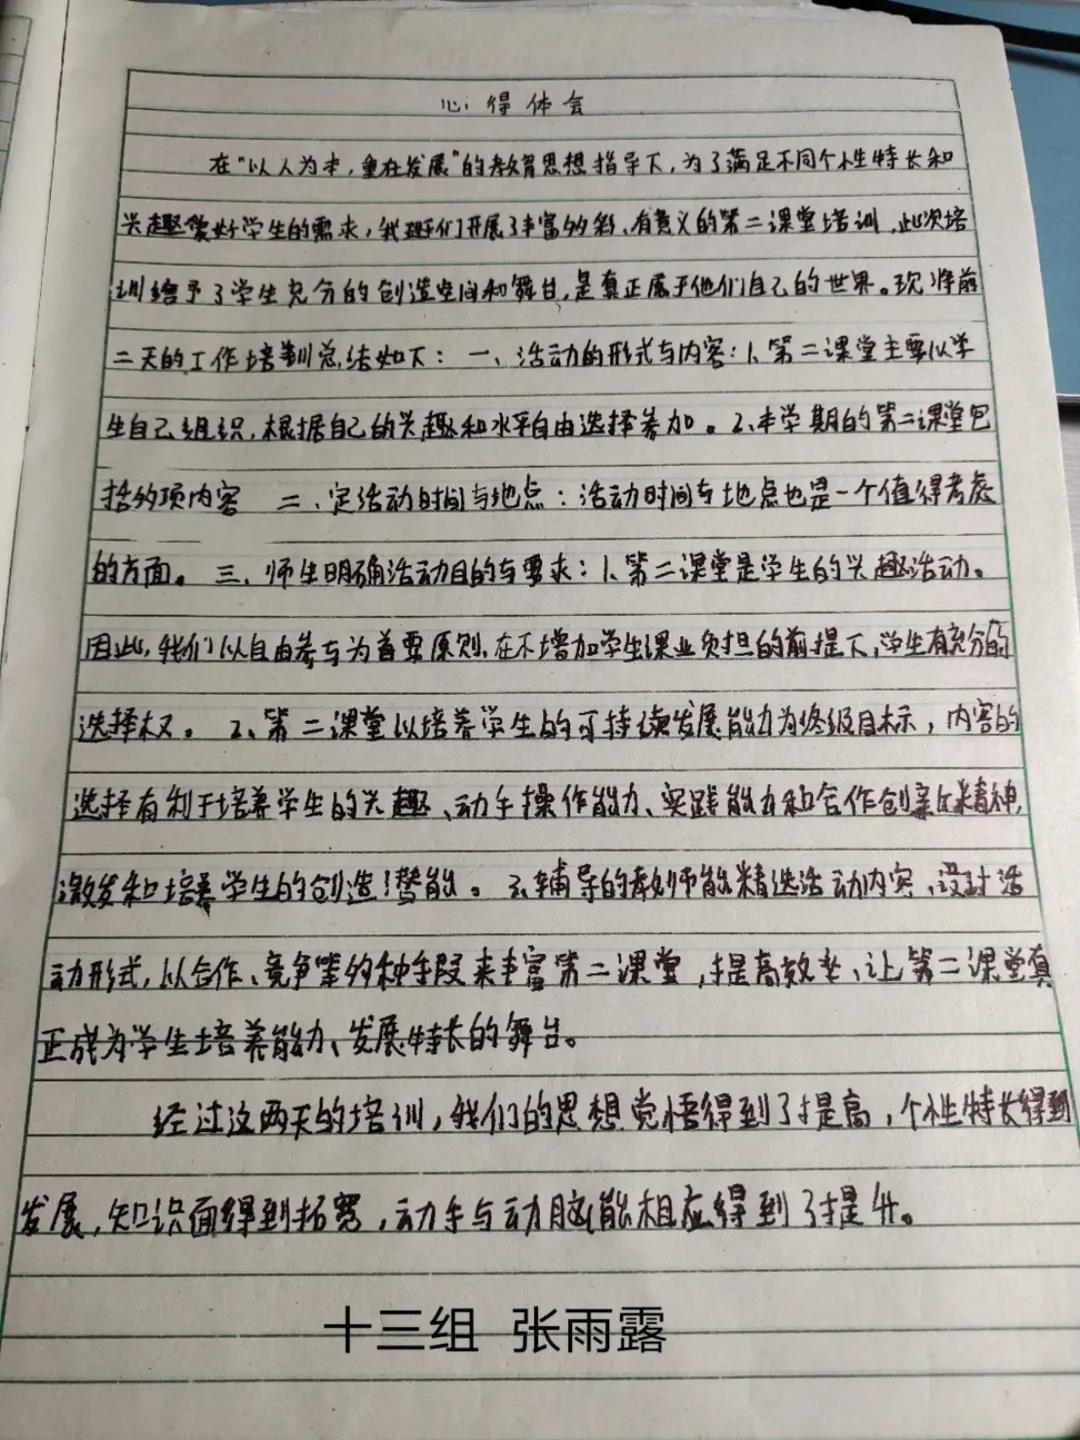 心得体会
在"以人为本，重在发展"的教育思想指导下，为了满足不同个性特长和
兴趣爱好学生的需求，我们开展了丰富多彩、有意义的第二课堂培训，此次培
训给予了学生充分的创造空间和舞台，是真正属于他们自己的世界。现将前
二天的工作培训总结如下：一、活动的形式与内容：1、第二课堂主要以学
生自己组织，根据自己的兴趣和水平自由选择参加。2、本学期的第二课堂包
括多项内容 二、定活动时间与地点：活动时间与地点也是一个值得考虑
的方面。三、师生明确活动目的与要求：1、第二课堂是学生的兴趣活动。
因此，我们以自由参与为首要原则，在不增加学生课业负担的前提下，学生有充分的
选择权。2、第二课堂以培养学生的可持续发展能力为终级目标，内容的
选择有利于培养学生的兴趣、动手操作能力、实践能力和合作创新精神，
激发和培养学生的创造潜能。3、辅导的教师能精选活动内容、设计活
动形式，以合作、竞争等多种手段来丰富第二课堂，提高效率、让第二课堂真
正成为学生培养能力、发展特长的舞台。
经过这两天的培训，我们的思想觉悟得到了提高，个性特长得到
发展，知识面得到拓宽，动手与动脑能相应得到了提升。
十三组 张雨露